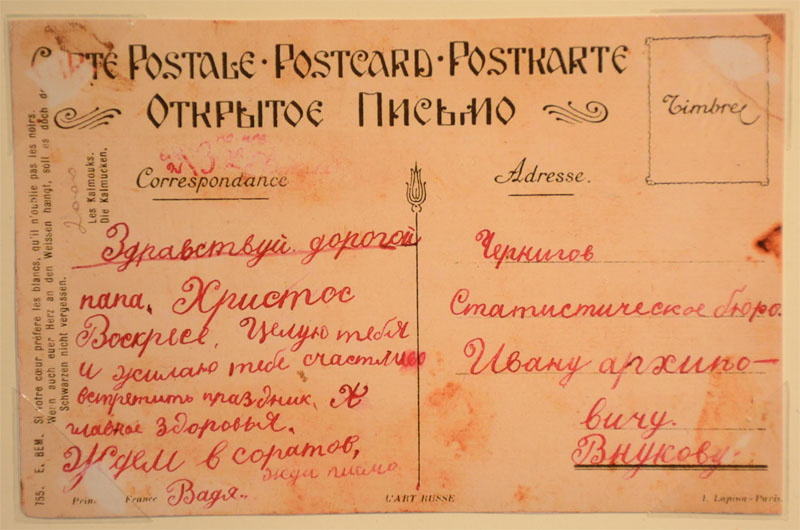 CARTE POSTALE · POSTCARD · POSTKARTE
ОТКРЫТОЕ ПИСЬМО
Timbre
Correspondance
Adresse.
Здравствуй дорогой
папа, Христос
Воскресе, Целую тебя
и жилаю тебе счастливо
встретить праздник, И
главное здоровья.
Ждем в соратов,
жди писмо
Вадя.
Чернигов
Статистическое бюро.
Ивану архипо-
вичу.
Внукову
755. E. BEM. Si votre cœur préfère les blancs, qu'il n'oublie pas les noirs.
Wenn auch euer Herz an den Weissen hængt, soll es doch
Schwarzen nicht vergessen.
Les Kalmouks.
Die Kalmucken.
France
L'ART RUSSE
I. Lapina - Paris.